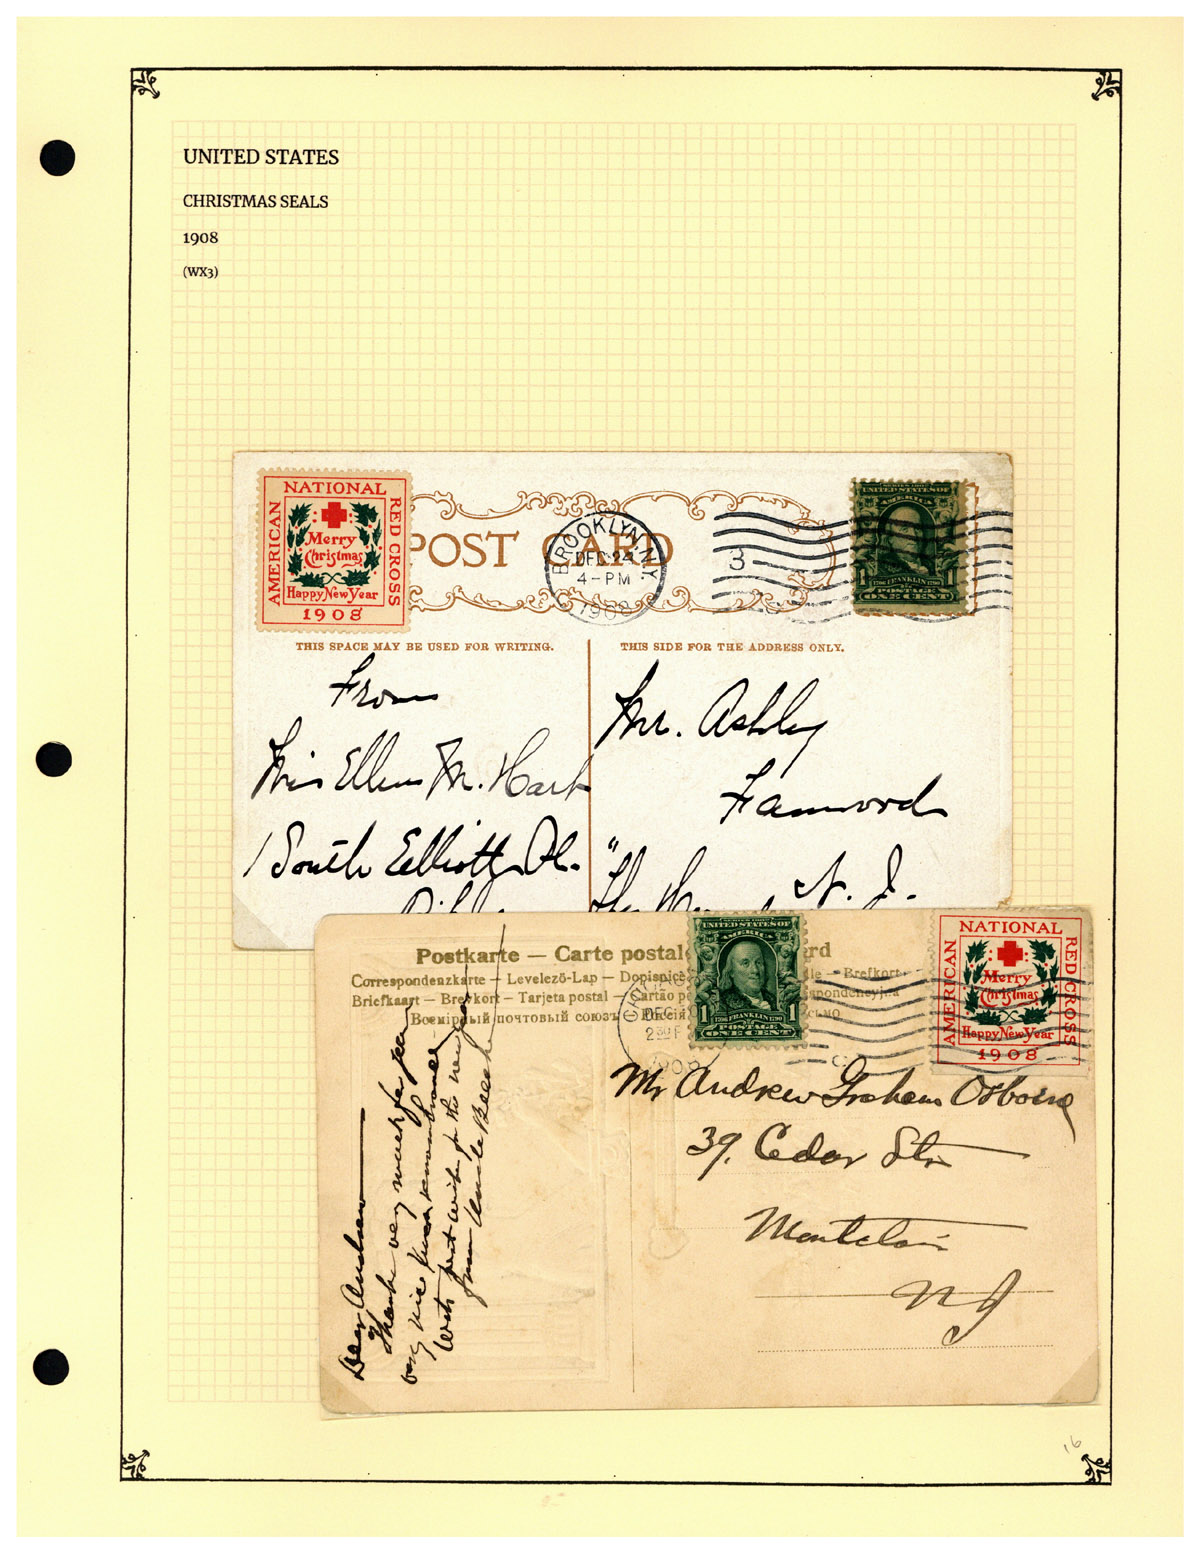 UNITED STATES
CHRISTMAS SEALS
1908
(WX3)
NATIONAL
AMERICAN
RED CROSS
Merry
Christmas
Happy New Year
1908
POST CARD
BROOKLYN, N.Y.
DEC 24
4-PM
1908
3
UNITED STATES OF
AMERICA
1706 FRANKLIN 1790
1 POSTAGE 1
ONE CENT
THIS SPACE MAY BE USED FOR WRITING.
THIS SIDE FOR THE ADDRESS ONLY.
From
Miss Ellen M. Hart
1 South Elliott Pl.
Mr. Ashley
Fanwood
N. J.
Postkarte — Carte postal
rd
Correspondenzkarte — Levelező-Lap — Dopisnice
le — Brefkort
Briefkaart — Brevkort — Tarjeta postal — Cartão po
Всемірный почтовый союзъ
UNITED STATES OF
AMERICA
1706 FRANKLIN 1790
1 POSTAGE 1
ONE CENT
DEC
1908
NATIONAL
AMERICAN
RED CROSS
Merry
Christmas
Happy New Year
1908
Mr Andrew Graham Osborne
39. Cedar Str
Montclair
N J
Dear Andrew
Thanks very much for your
very nice remembrance
With best wishes for the new year
from
16